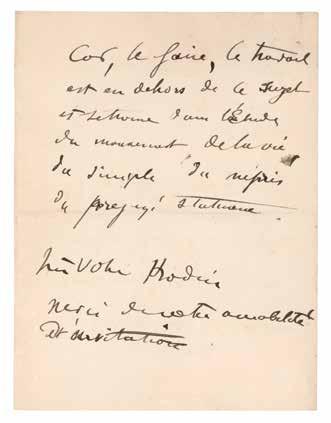 Car, le faire, le travail
est en dehors de le sujet
et se trouve dans l'Etude
du mouvement de la vie
du simple du mépris
du préjugé statuaire
votre Rodin
merci de votre amabilité
et invitation